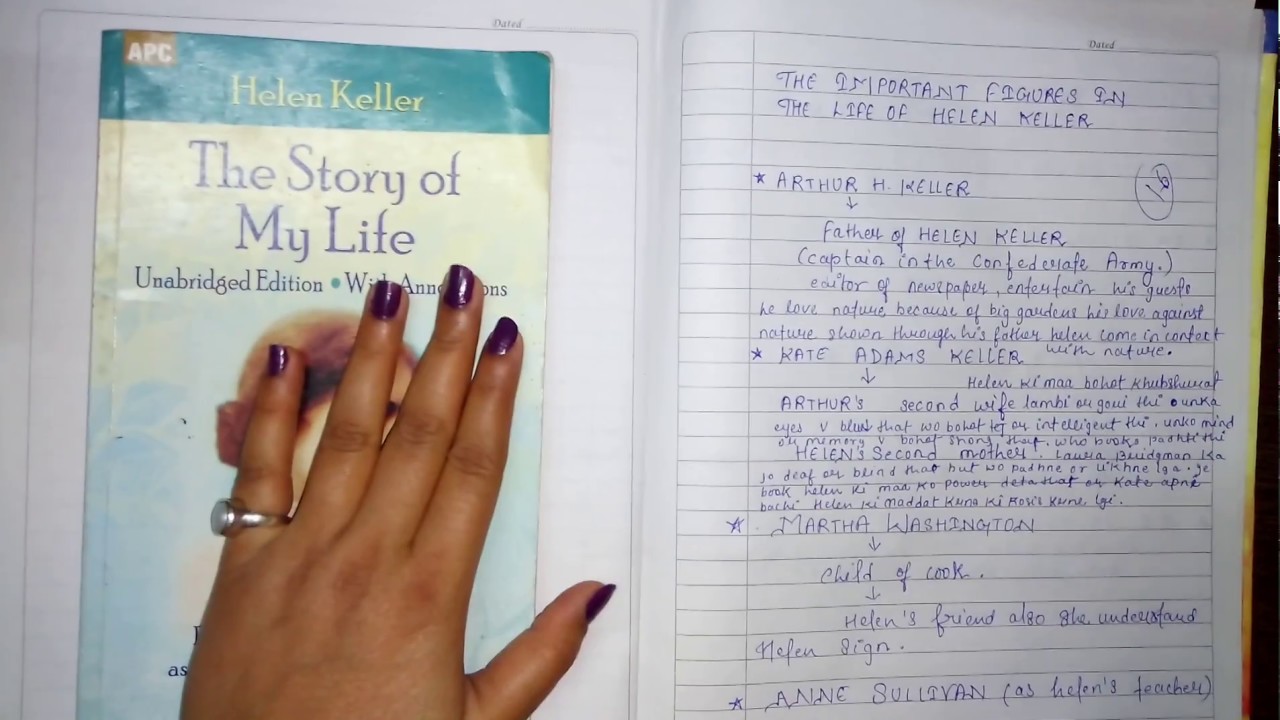 Dated
APC
Helen Keller
The Story of
My Life
Unabridged Edition • With
as
Dated
THE IMPORTANT FIGURES IN
THE LIFE OF HELEN KELLER
16
* ARTHUR H. KELLER
↓
Father of HELEN KELLER
(Captain in the Confederate Army.)
editor of newspaper, entertain his guests
he love nature because of big gardens his love against
nature shown through his father helen come in contect
with nature.
* KATE ADAMS KELLER
↓
Helen ki maa bohot khubshurat
ARTHUR'S second wife lambi or gori thi unka
eyes v blue that wo bohot tej or inteligent thi. unko mind
or memory v bohot strong that. who books padhti thi
HELEN'S Second mother. Laura Bridgman ka
jo deaf or blind that but wo padhne or likhne lga. ye
book helen ki maa ko power deta that or Kate apne
bachi Helen ki maddat krna ki kosis krne lgi.
* MARTHA WASHINGTON
↓
Child of cook.
↓
Helen's friend also she understand
Helen Sign.
* ANNE SULLIVAN (as helen's teacher)